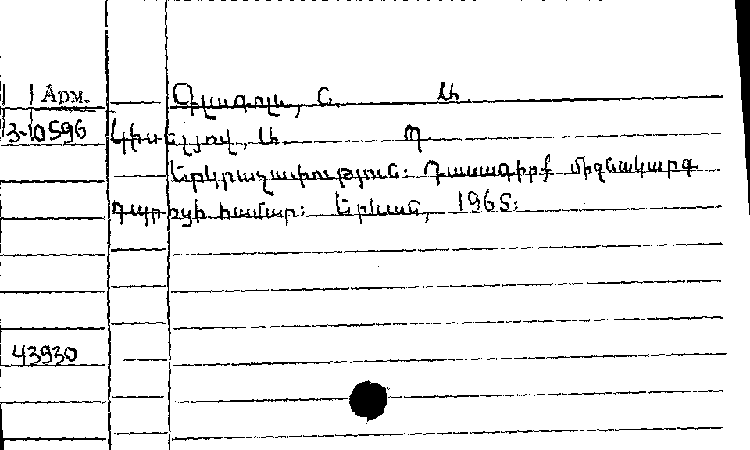 Арм. Գլագոլև, Ն. Ա.
3-10596 Կիսելյով, Ա. Պ.
Երկրաչափություն: Դասագիրք միջնակարգ
դպրոցի համար: Երևան, 1965:
43930